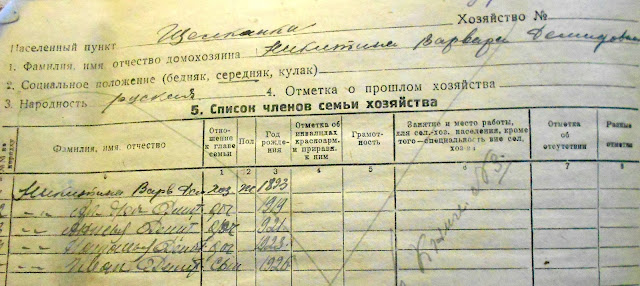 Хозяйство №
Населенный пункт Щелканка
1. Фамилия, имя, отчество домохозяина Никитина Варвара
2. Социальное положение (бедняк, середняк, кулак)
3. Народность русская 4. Отметка о прошлом хозяйства
5. Список членов семьи хозяйства
Фамилия, имя, отчество Отношение к главе семьи Пол Год рождения Отметка об инвалидах красноарм. и приравн. к ним Грамотность Занятие и место работы, для сел.-хоз. населения, кроме того—специальность вне сел. хоз-ва Отметка об отсутствии Разные отметки
1 2 3 4 5 6 7 8
Никитина Варв хоз ж 1893
-"- -"- Дмит доч 1919
-"- -"- Дмит доч 1921
-"- -"- Дмит доч 1923
-"- Иван Дмит сын 1926